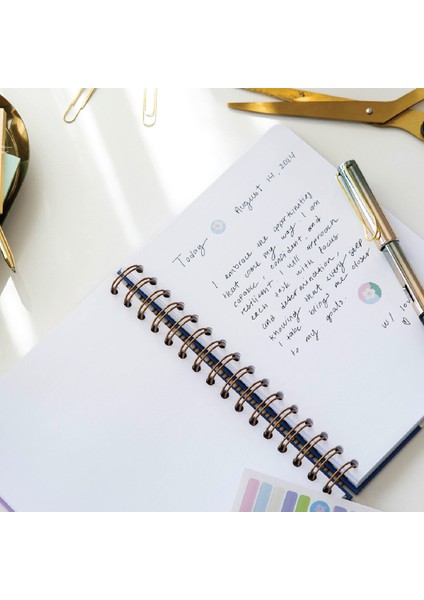 August 14, 2024
Today
I embrace the opportunities
that come my way. I am
capable, confident, and
resilient. I will approach
each task with focus
and determination,
knowing that every step
take brings me closer
to my goals.
w/